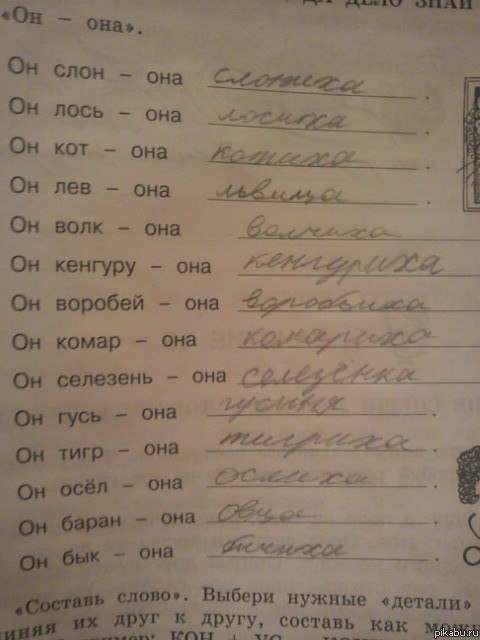 ДА ДЕЛО ЗНАЙ
«Он – она».
Он слон – она слониха.
Он лось – она лосиха.
Он кот – она котиха.
Он лев – она львица.
Он волк – она волчиха
Он кенгуру – она кенгуриха
Он воробей – она воробьиха
Он комар – она комариха
Он селезень – она селезёнка
Он гусь – она гусыня.
Он тигр – она тигриха.
Он осёл – она ослиха.
Он баран – она овца.
Он бык – она бычиха.
«Составь слово». Выбери нужные «детали»
их друг к другу, составь как
КОН + УС
pikabu.ru